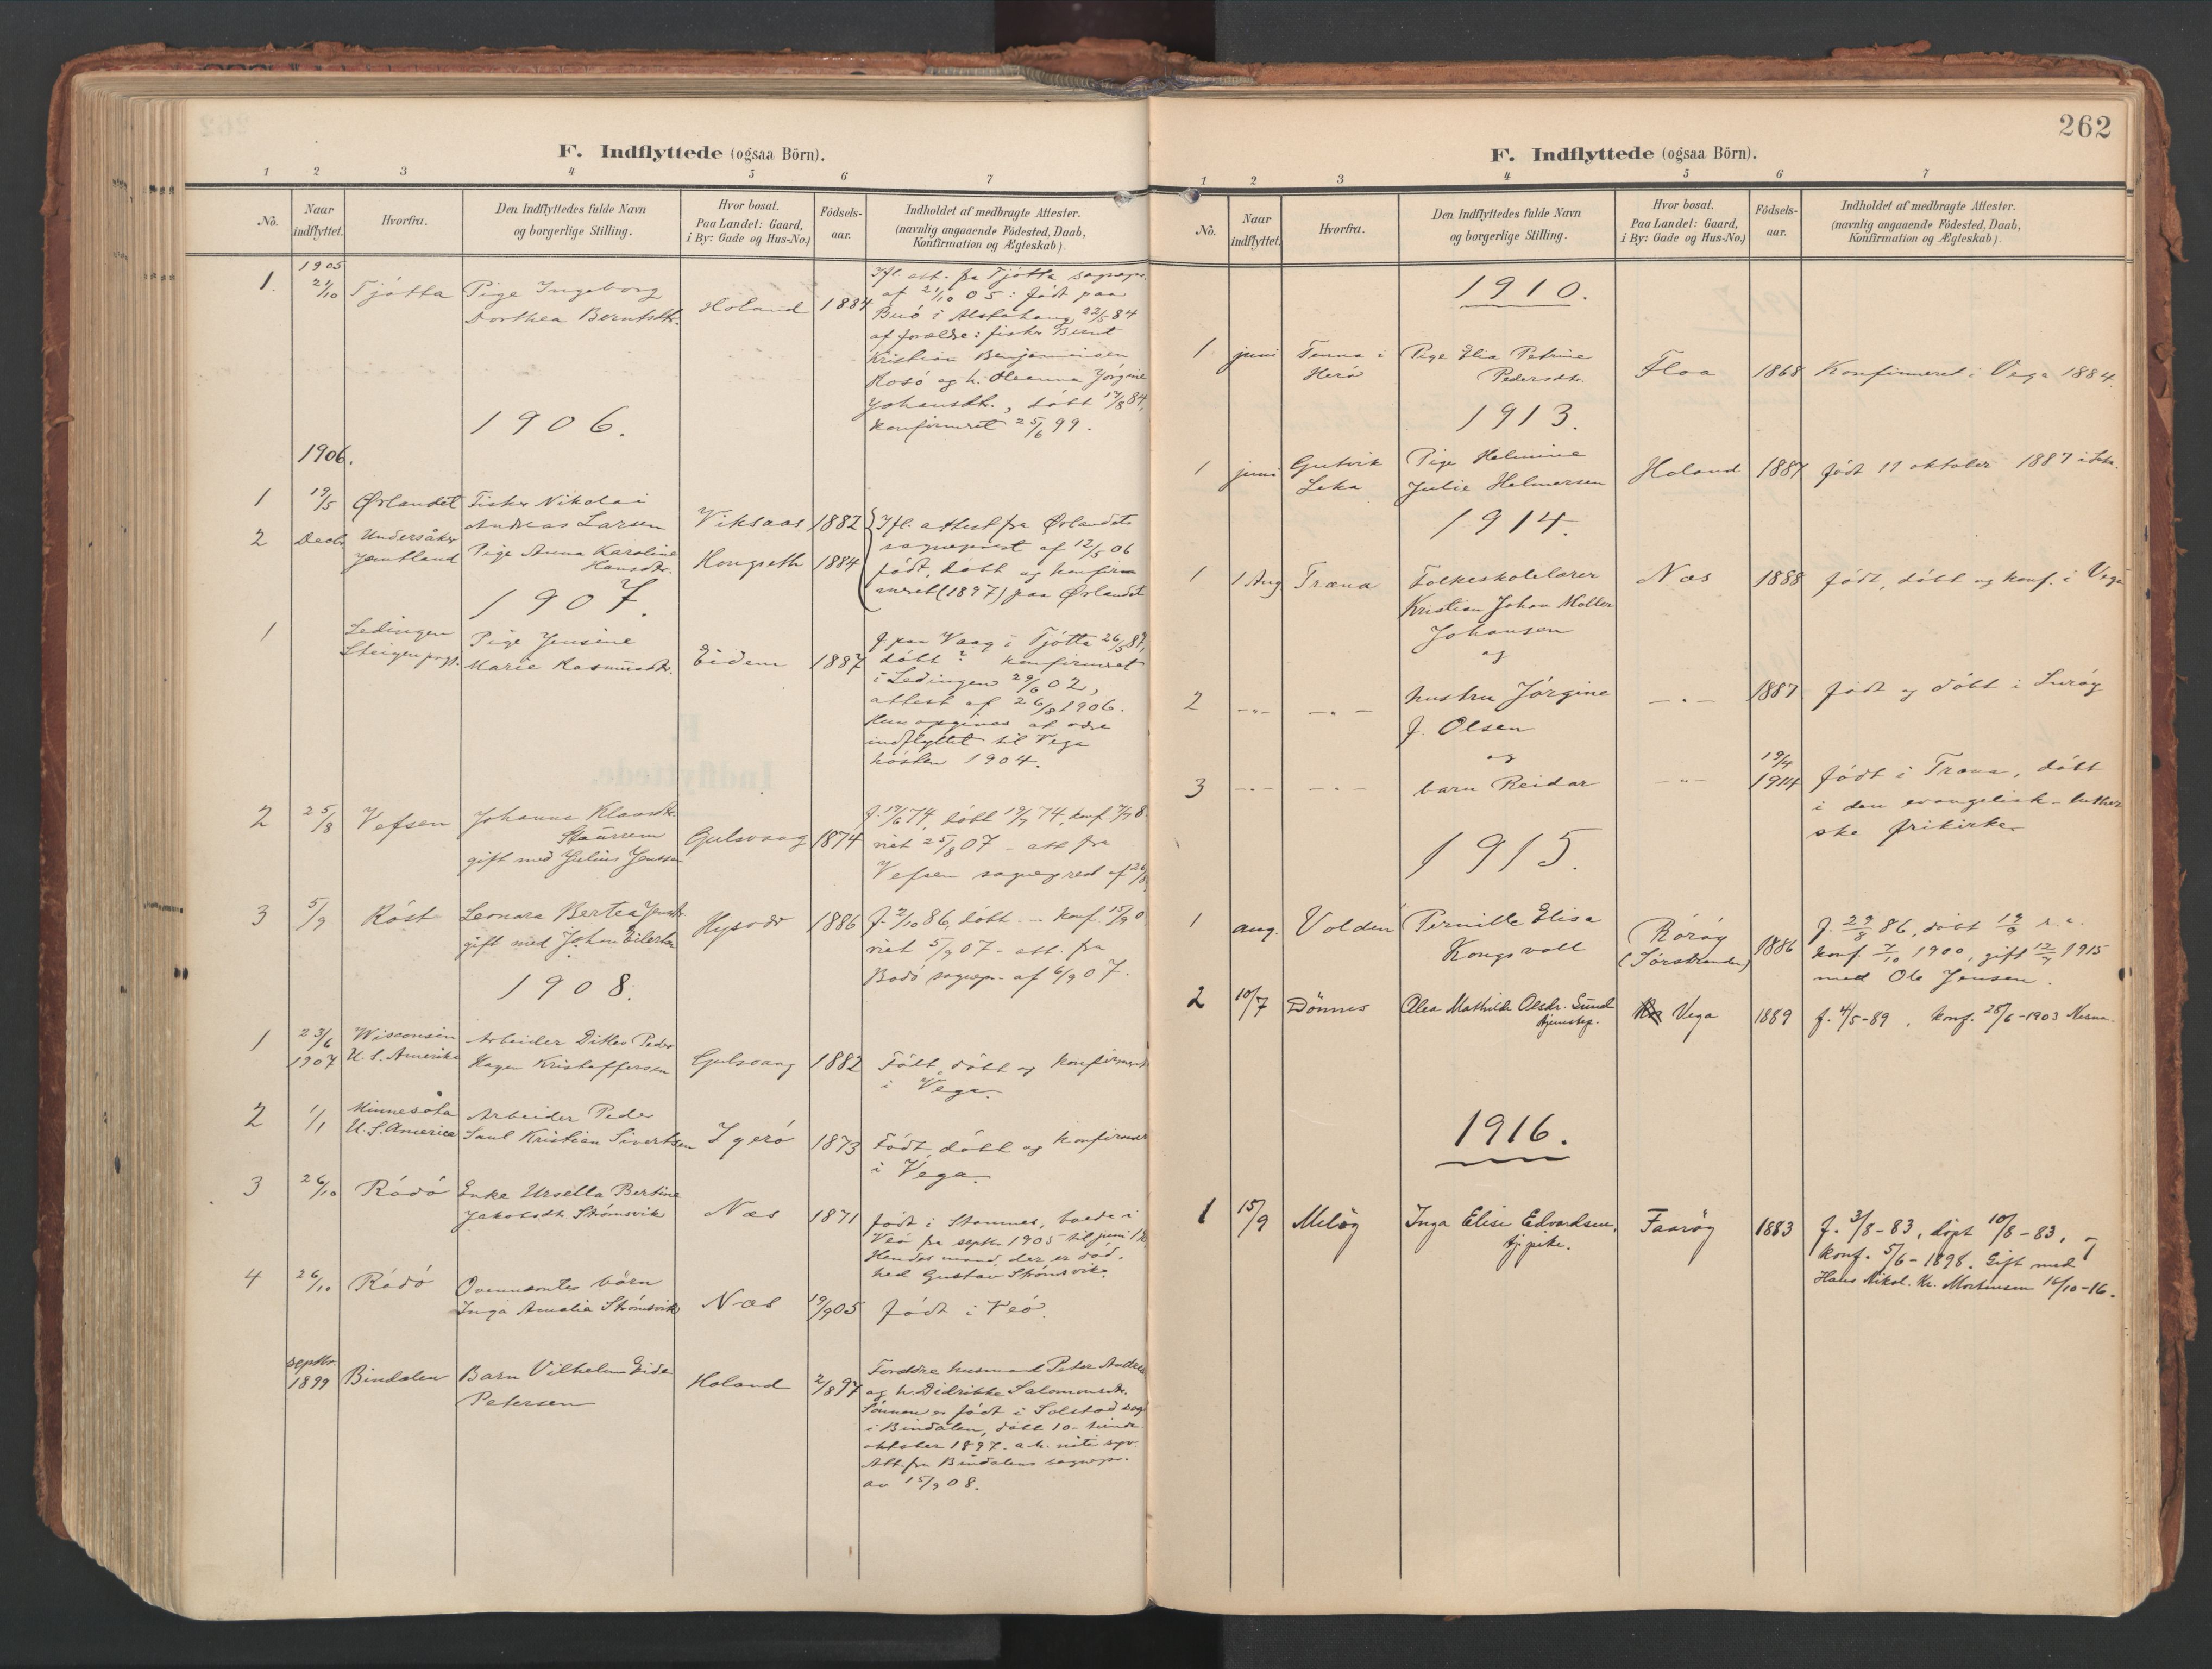 F. Indflyttede (ogsaa Börn).
1 2 3 4 5 6 7
No.
Naar indflyttet.
Hvorfra.
Den Indflyttedes fulde Navn og borgerlige Stilling.
Hvor bosat. Paa Landet: Gaard, i By: Gade og Hus-No.)
Födsels-aar.
Indholdet af medbragte Attester. (navnlig angaaende Födested, Daab, Konfirmation og Ægteskab).
1905
1. 21/10 Tjøtta Pige Ingeborg
Dorthea Berntsdtr. Holand 1884
Ifl. att. fra Tjøtta sognepr.
af 21/10 05: født paa
Buö i Alstahaug 22/5 84
af forældre: fisker Bernt
Kristian Benjaminsen
Rosö og h. Oleanna Jörgine
Johansdtr., döbt 17/8 84,
konfirmeret 25/6 99.
1906.
1906.
1 19/5 Ørlandet Fisker Nikolai
Andreas Larsen Viksaas 1882
Ifl. attest fra Ørlandets
sogneprest af 12/5 06
født, döbt og konfir-
meret (1897) paa Ørlandet
2 Decbr. Undersåker
Jemtland Pige Anna Karoline
Hansdtr. Hongseth 1884
1907.
1 Ledingen
Steigen prgj. Pige Jensine
Marie Rasmusdtr. Eidem 1887
f. paa Vaag i Tjøtta 26/5 87,
döbt? konfirmeret
i Ledingen 29/6 02,
attest af 26/8 1906.
Hun opgives at være
indflyttet til Vega
hösten 1904.
2 25/8 Vefsen Johanna Klausdtr.
Staurrem
gift med Julius Jenssen Gulsvaag 1874
f. 17/6 74, döbt 19/7 74, konf. 7/7 8
viet 25/8 07 – att. fra
Vefsen sogneprest af 26/8
3 5/9 Röst Leonora Bertea Jensdtr.
gift med Johan Eilertsen Hysvær 1886
f. 2/10 86, döbt – konf. 15/9 0
viet 5/9 07 – att. fra
Bodö sognepr. af 6/9 07.
1908.
1 23/6
1907 Wisconsin
U. S. Amerika Arbeider Ditlev Peder
Hagen Kristoffersen Gulsvaag 1882
Født, döbt og konfirmeret
i Vega.
2 1/1 Minnesota
U. S. America Arbeider Peder
Saul Kristian Sivertsen Igerö 1873
Født, döbt og konfirmer
i Vega.
3 26/10 Rödö Enke Ursella Bertine
Jakobsdtr. Strömsvik Næs 1871
født i Stamnes, boede i
Veö fra septbr. 1905 til juni
Hendes mand, der er död,
hed Gustav Strömsvik.
4 26/10 Rödö Ovennævntes börn
Inga Amalia Strömsvik Næs 19/9 05 født i Veö.
septbr.
1899 Bindalen Barn Vilhelm Eide
Petersen Holand 2/8 97
Foreldre husmand Peter Andrea
og h. Didrikke Salomonsdtr.
Sönnen er født i Solstad sogn
i Bindalen, döbt 10 – tiende
oktober 1897. a. h. niti syv.
Att. fra Bindalens sognepr.
av 15/9 08.
262
F. Indflyttede (ogsaa Börn).
1 2 3 4 5 6 7
No.
Naar indflyttet.
Hvorfra.
Den Indflyttedes fulde Navn og borgerlige Stilling.
Hvor bosat. Paa Landet: Gaard, i By: Gade og Hus-No.)
Födsels-aar.
Indholdet af medbragte Attester. (navnlig angaaende Födested, Daab, Konfirmation og Ægteskab).
1910.
1 juni Tenna i
Herö Pige Elia Petrine
Pedersdtr. Floa 1868 Konfirmeret i Vega 1884.
1913.
1 juni Gutvik
Leka Pige Helmine
Julie Helmersen Holand 1887 født 11 oktober 1887 i Leka.
1914.
1 1 Aug Træna Folkeskolelærer
Kristian Johan Moller
Johansen Næs 1888 født, döbt og konf. i Vega
og
2 –"– –"– hustru Jörgine
J. Olsen –"– 1887 født og döbt i Luröy
og
3 –"– –"– barn Reidar –"– 19/4
1914 født i Træna, döbt
i den evangelisk-luther
ske frikirke
1915.
1 aug. Volden Pernille Elisa
Kongsvoll Röröy
(Sörstranden) 1886
f. 29/8 86, döbt 19/9 s. a.
konf. 7/10 1900, gift 12/7 1915
med Ole Jensen.
2 10/7 Dönnes Olea Mathilde Olsdr. Sund
tjenestep. Vega 1889 f. 4/5-89, konf. 28/6-1903 Nesna.
1916.
1 15/9 Melöy Inga Elise Edvardsen,
tj. pike. Faaröy 1883
f. 3/8-83, döpt 10/8-83,
konf. 5/6-1898. Gift med
Hans Nikol. Kr. Mortensen 16/10-16.